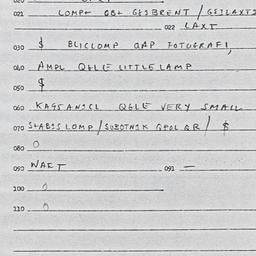 021 LOMP← GBL GESBRENT / GESLAXT
022 LAXT
030 $ BLICLOMP QAP FOTUGRAFI,
040 AMPL QGLE LITTLE LAMP
050 $
060 KAGSANSCL QGLE VERY SMALL
070 SLABSSLOMP / SUBOTNIK GPOL QR / $
080 0
090 WAET 091 —
100 0
110 0